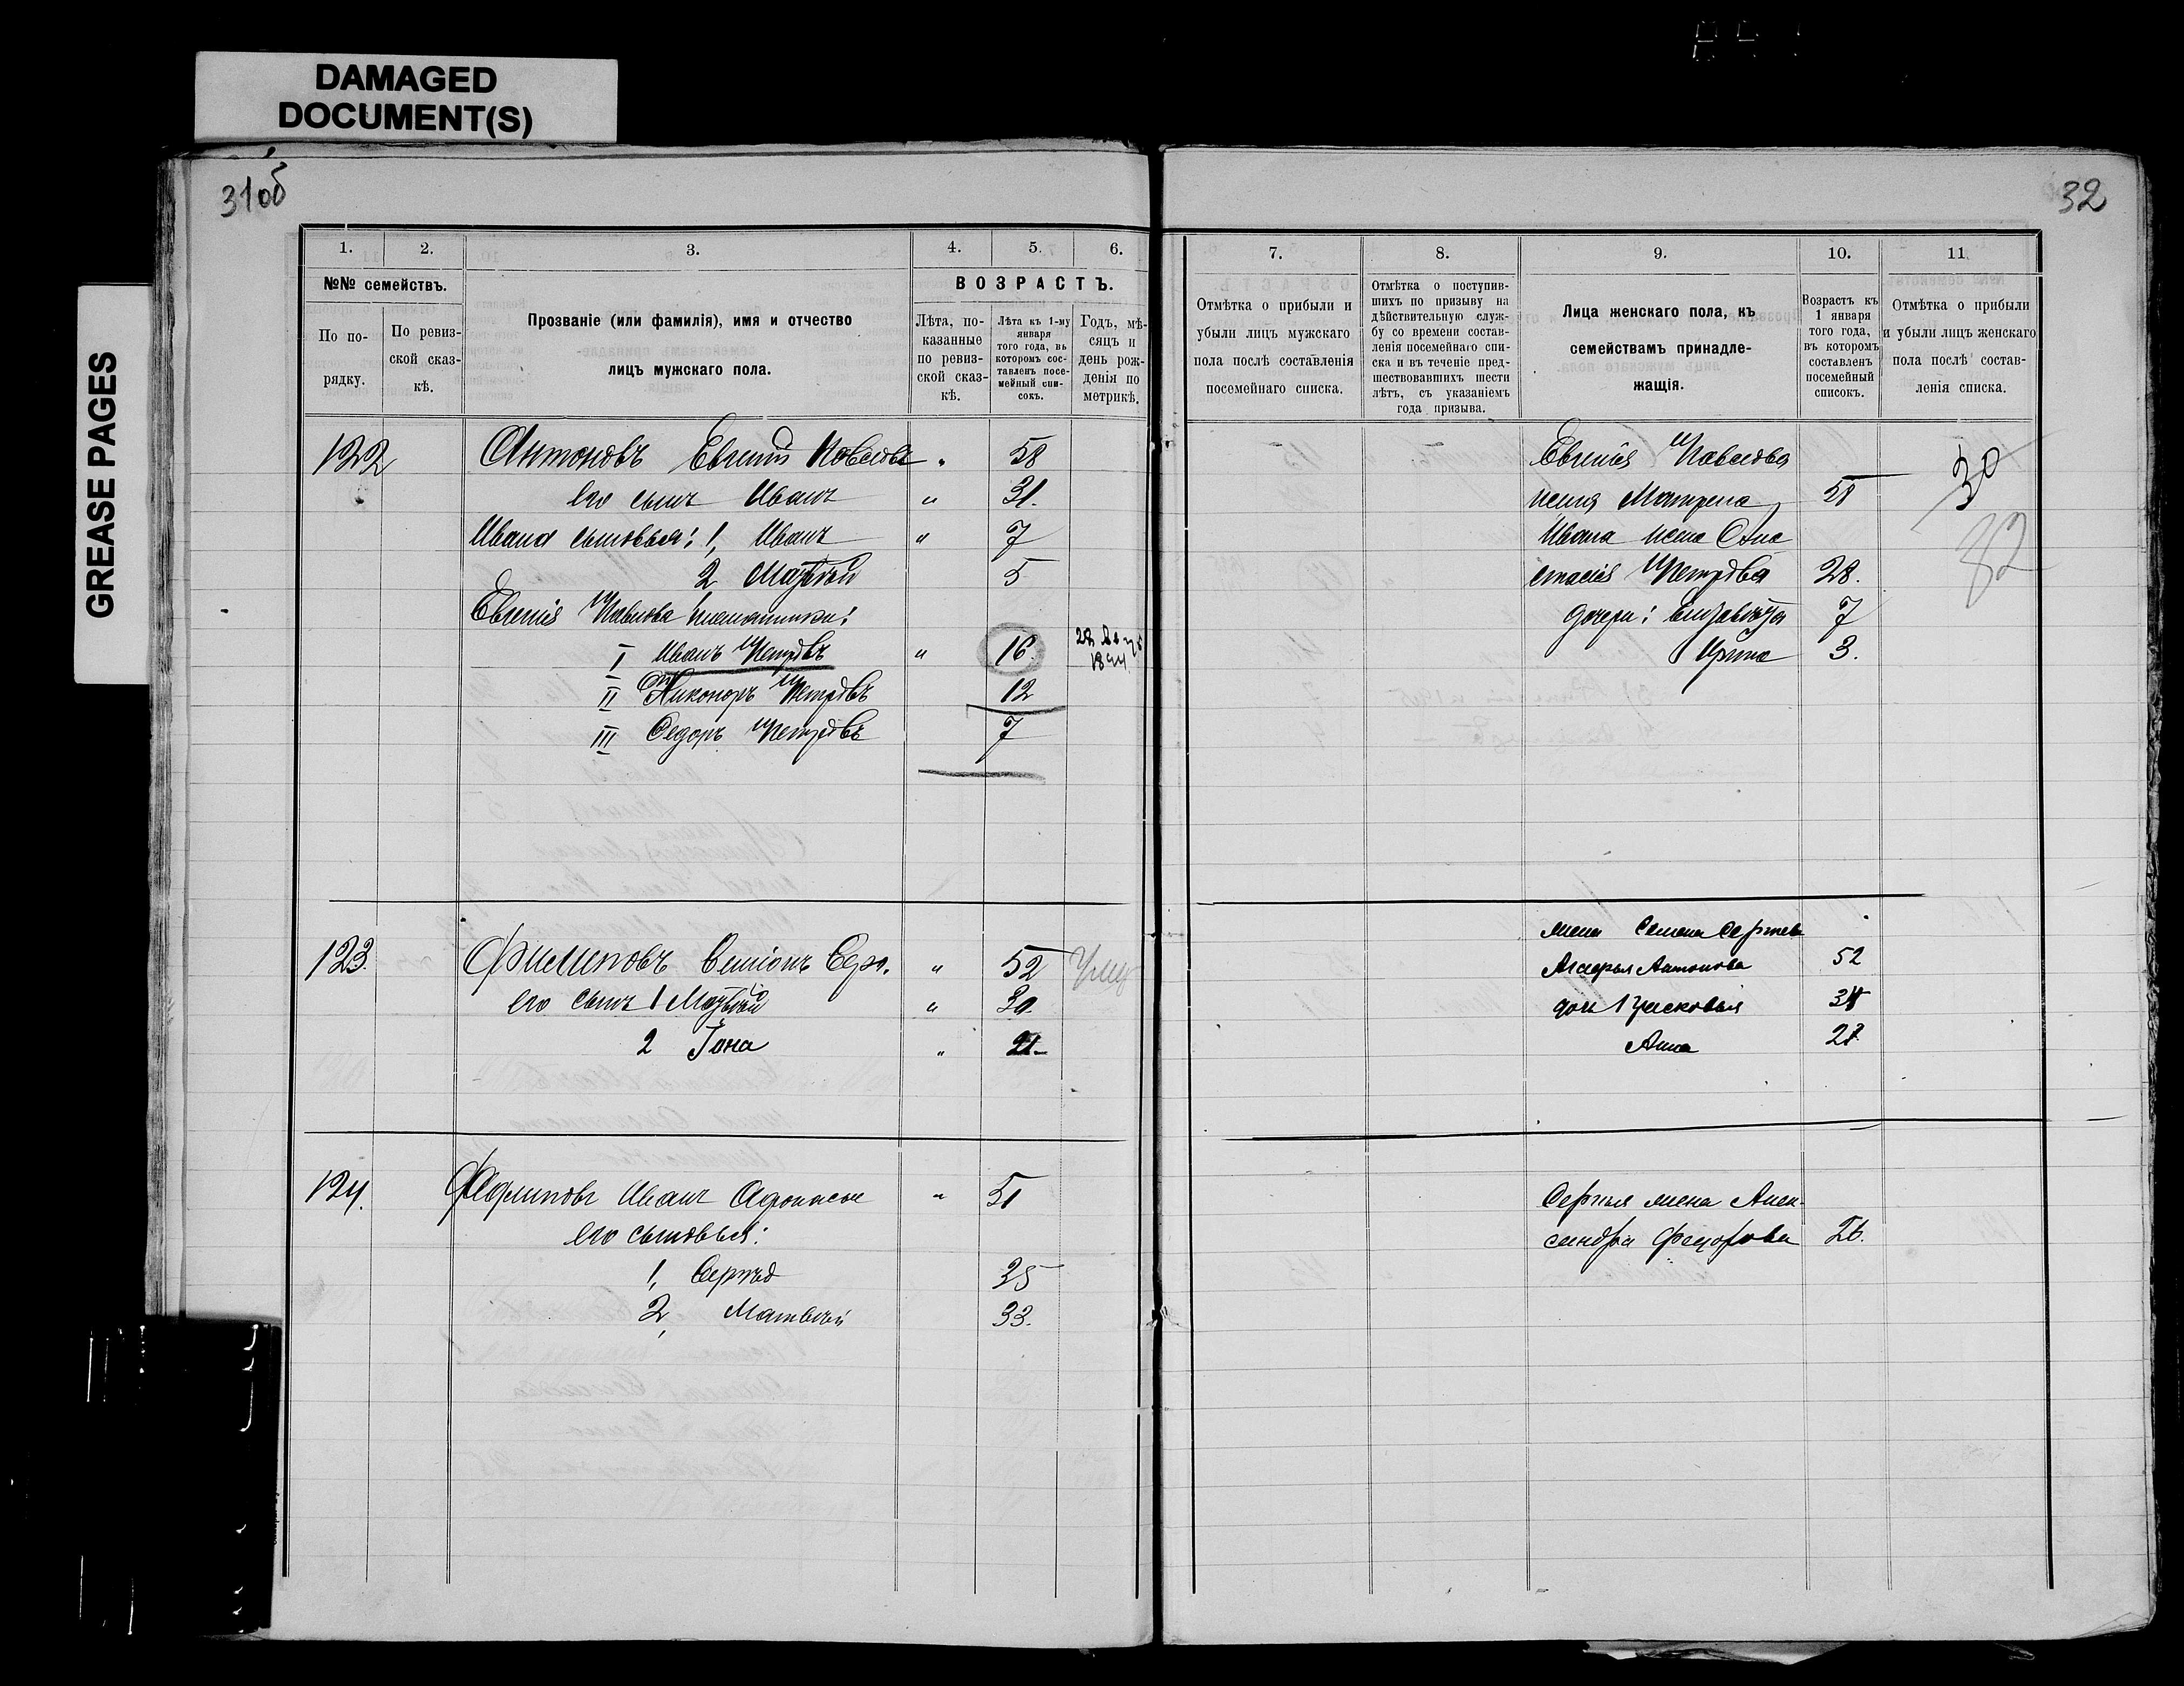 DAMAGED
DOCUMENT(S)
GREASE PAGES
31об
32
1.
2.
3.
4.
5.
6.
№№ семействъ.
По по-
рядку.
По ревиз-
ской сказ-
кѣ.
Прозваніе (или фамилія), имя и отчество
лицъ мужскаго пола.
ВОЗРАСТЪ.
Лѣта, по-
казанные
по ревиз-
ской сказ-
кѣ.
Лѣта къ 1-му
января
того года, въ
которомъ сос-
тавленъ посе-
мейный спи-
сокъ.
Годъ, мѣ-
сяцъ и
день рож-
денія по
метрикѣ.
122 Антоновъ Евгений Павловъ " 58
его сынъ Иванъ " 31.
Ивана сыновья: 1, Иванъ " 7
2 Матвѣй 5
Евгенія Павлова племянники:
I Иванъ Петровъ " 16
II Никоноръ Петровъ 12
III Федоръ Петровъ 7
123. Филиповъ Семіонъ Серг. " 52
его сынъ 1 Матвѣй " 30
2 Іона " 21
124. Филиповъ Иванъ Афонасьев " 51
его сыновья:
1, Сергѣй 25
2, Матвѣй 33.
7.
8.
9.
10.
11
Отмѣтка о прибыли и
убыли лицъ мужскаго
пола послѣ составленія
посемейнаго списка.
Отмѣтка о поступив-
шихъ по призыву на
дѣйствительную служ-
бу со времени состав-
ленія посемейнаго спи-
ска и въ теченіе пред-
шествовавшихъ шести
лѣтъ, съ указаніемъ
года призыва.
Лица женскаго пола, къ
семействамъ принадле-
жащія.
Возрастъ къ
1 января
того года,
въ которомъ
составленъ
посемейный
списокъ.
Отмѣтка о прибыли
и убыли лицъ женскаго
пола послѣ состав-
ленія списка.
Евгенія Павлова
жена Матрена 58
30
Ивана жена Ана
32
стасія Петрова 28.
дочери: Елизавета 7
Ирина 3.
жена Семена Сергѣев
Антонова 52
дочь 1 Прасковья
Анна
Сергѣя жена Алек-
сандра Федорова 26.